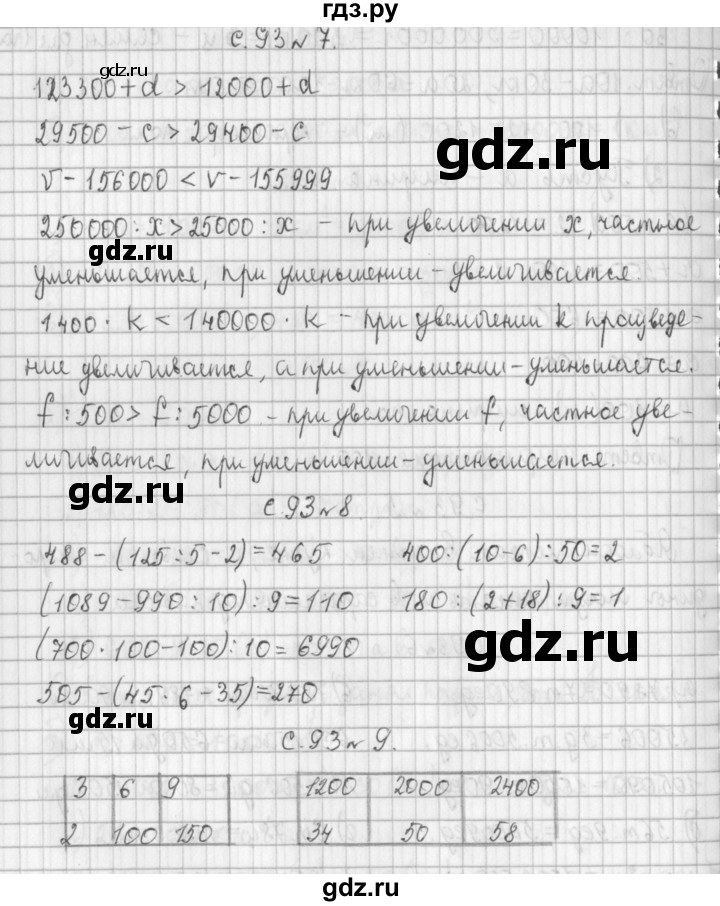 гдз.ру
с.93 № 7.
gdz.ru
123300 + d > 12000 + d
29500 - c > 29400 - c
gdz.ru
v - 156000 < v - 155999
250000 : x > 25000 : x - при увеличении x, частное
gdz.ru
уменьшается, при уменьшении - увеличивается.
1400 · k < 140000 · k - при увеличении k произведе-
gdz.ru
ние увеличивается, а при уменьшении - уменьшается.
f : 500 > f : 5000 - при увеличении f, частное уве-
личивается, при уменьшении - уменьшается.
gdz.ru
с.93 № 8.
488 - (125 : 5 - 2) = 465 400 : (10 - 6) : 50 = 2
(1089 - 990 : 10) : 9 = 110 180 : (2 + 18) : 9 = 1
gdz.ru
(700 · 100 - 100) : 10 = 6990
505 - (45 · 6 - 35) = 270
gdz.ru
с.93 № 9.
3 6 9 1200 2000 2400
2 100 150 34 50 58
gdz.ru
gdz.ru